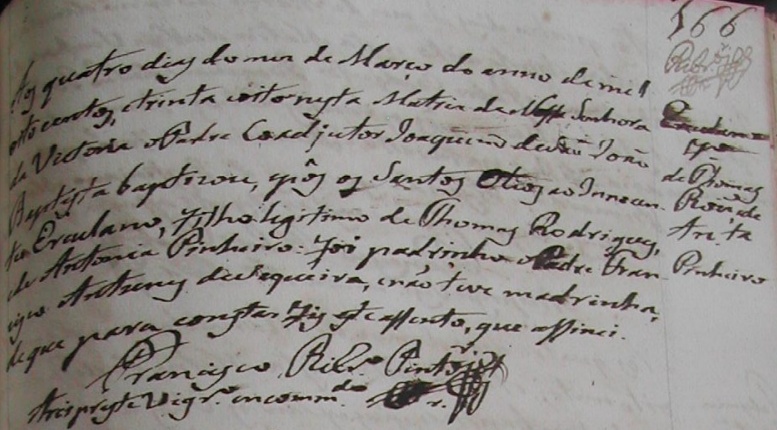 166
Aos quatro dias do mez de Março do anno de mil
oito centos, e trinta e oito nesta Matris de Nossa Senhora
da Victoria o Padre Coadjutor Joaquim de São João
Baptysta baptizou, e pôs os Santos Oleos ao Innocen-
te Erculano, filho legitimo de Thomas Rodrigues,
e de Antonia Pinheiro. Foi padrinho o Padre Fran-
cisco Antunes de Sequeira, e não teve madrinha,
de que para constar fis este assento, que assinei.
Francisco Ribr.º Pinto
Arcipreste Vigr.º encommdo
Erculano
de Thomas
Roiz e de
An.ta
Pinheiro